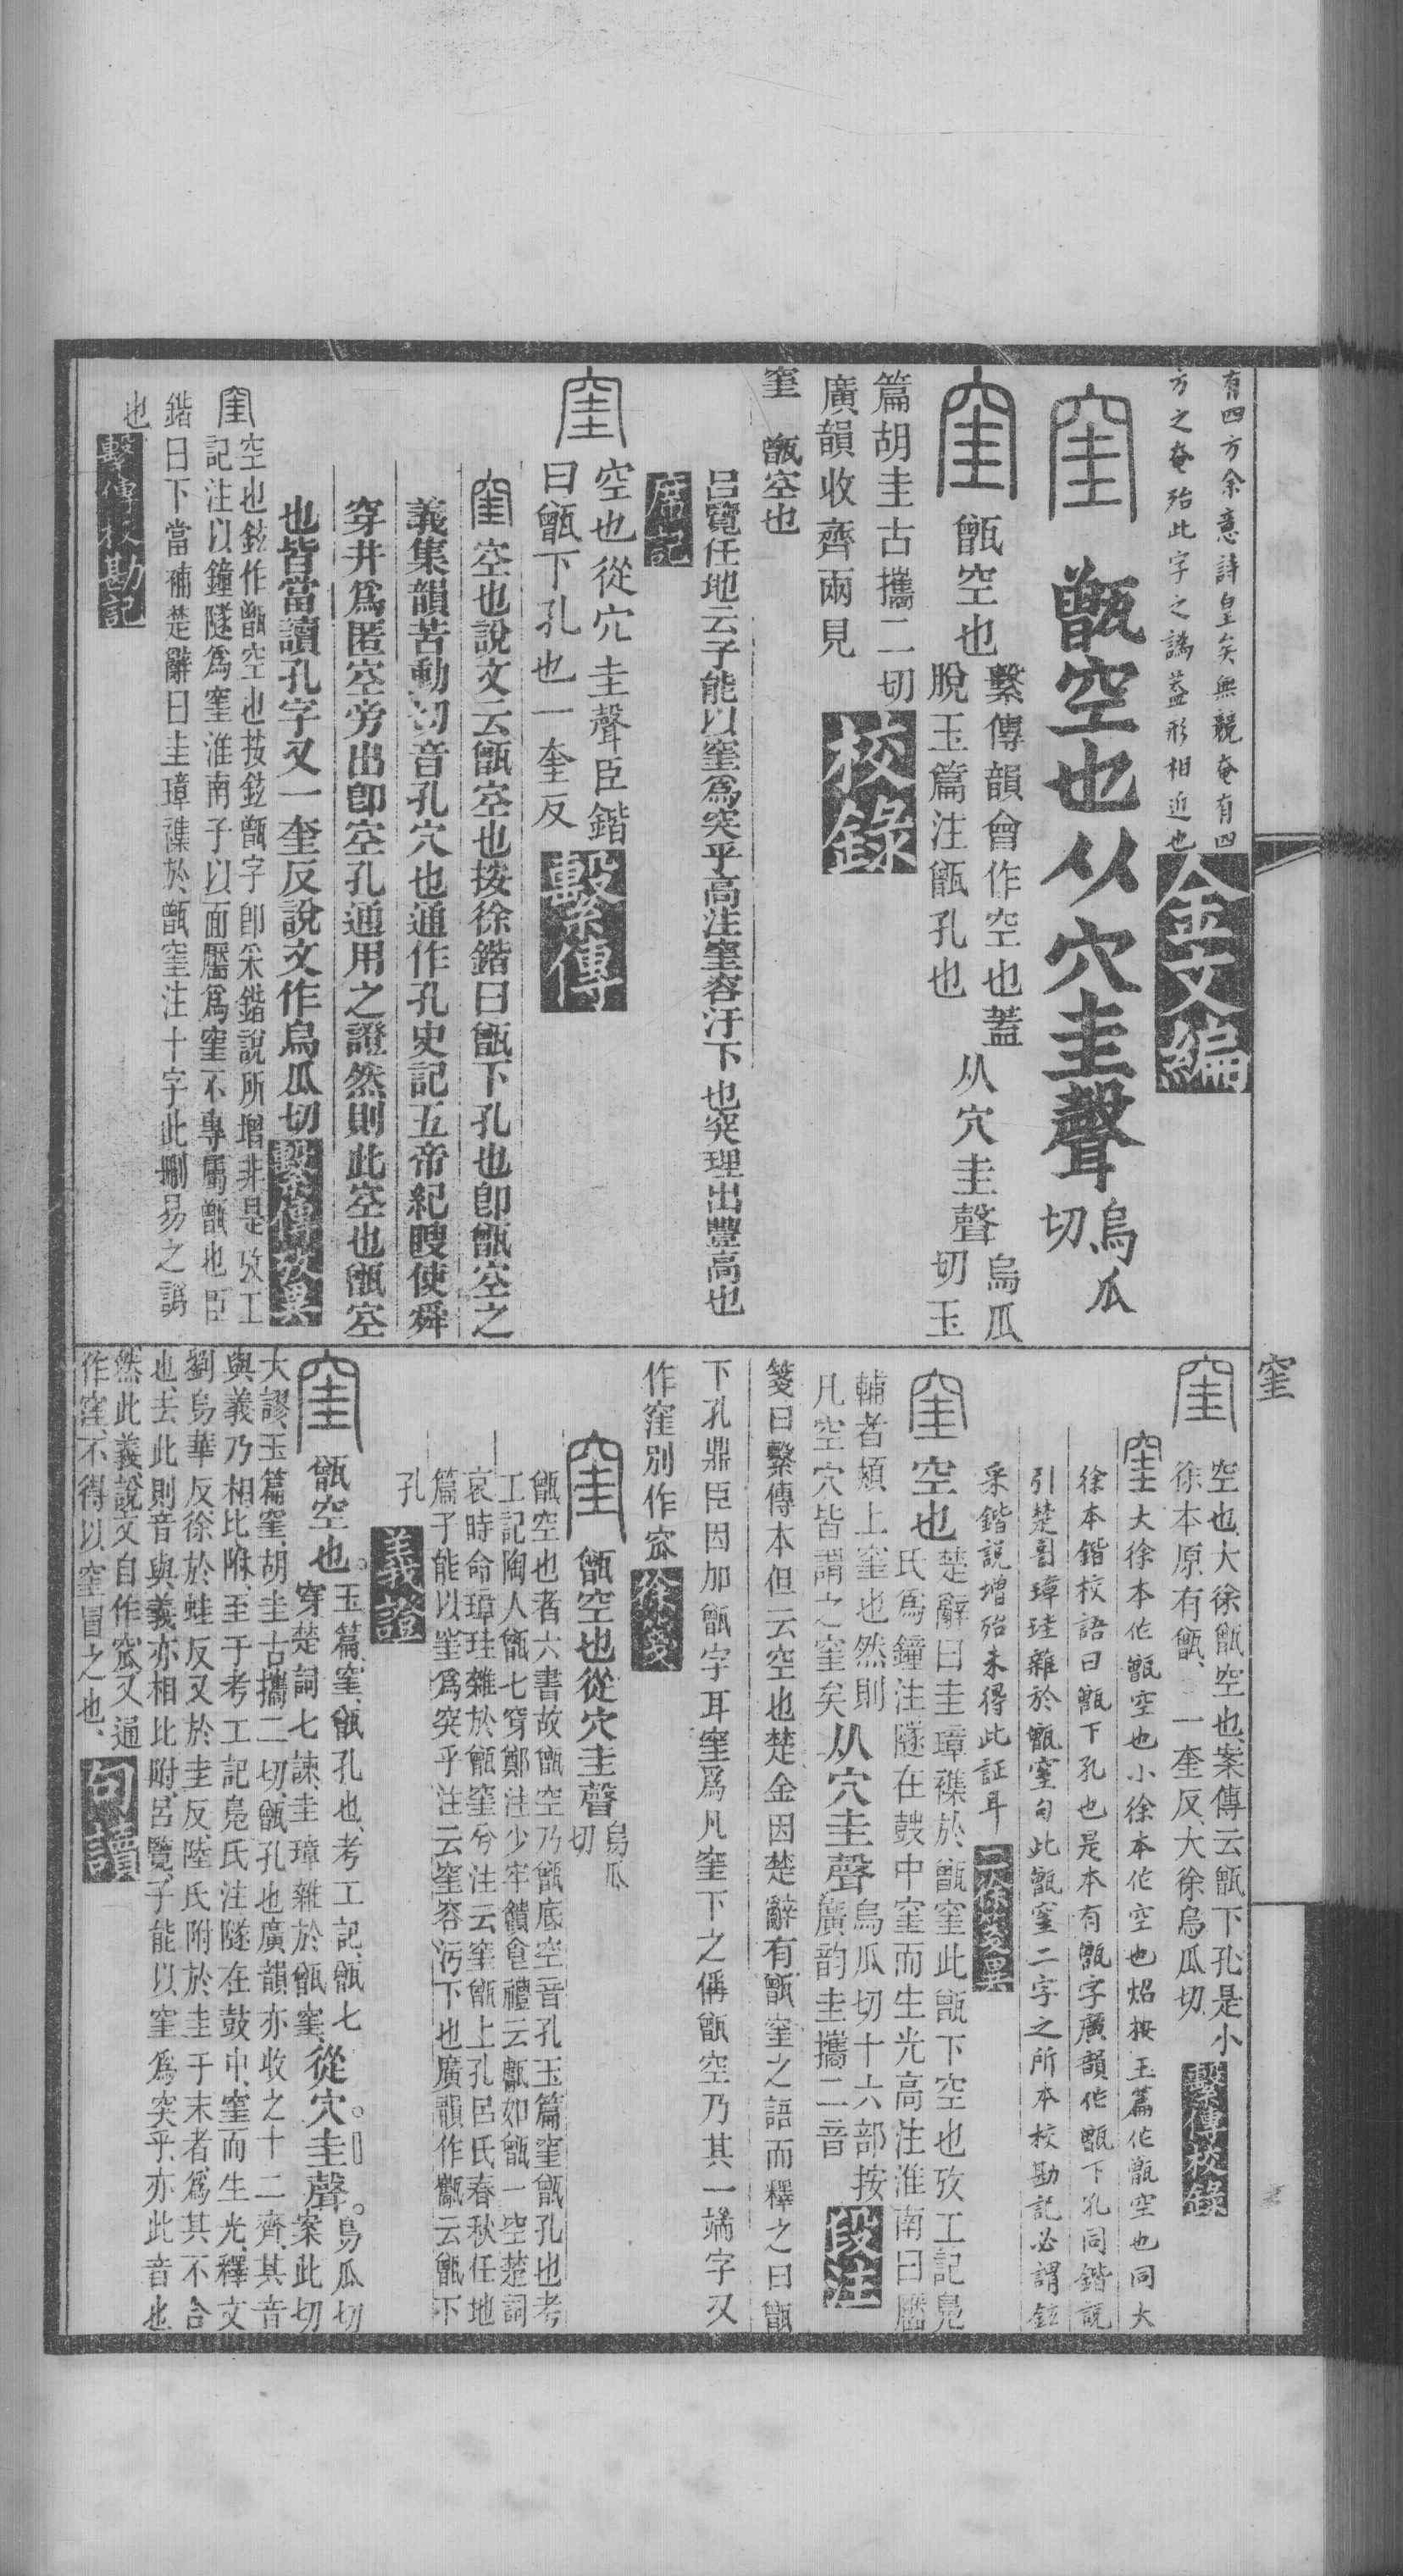 有四方余意詩皇矣無競奄有四
方之奄殆此字之譌蓋形相近也
金文編
窐
甑空也从穴圭聲
烏瓜
切
窐
甑空也
繫傳韻會作空也蓋
脫玉篇注甑孔也
从穴圭聲
烏瓜
切玉
篇胡圭古攜二切
廣韻收齊兩見
校錄
窐 甑空也
呂覽任地云子能以窐爲突乎高注窐容汙下也突理出豐高也
席記
窐
空也從穴圭聲臣鍇
曰甑下孔也一奎反
繫傳
窐空也說文云甑空也按徐鍇曰甑下孔也卽甑空之
義集韻苦動切音孔穴也通作孔史記五帝紀瞍使舜
穿井爲匿空旁出卽空孔通用之證然則此空也甑空
也皆當讀孔字又一奎反說文作烏瓜切
繫傳攷異
窐
空也鉉作甑空也按鉉甑字卽采鍇說所增非是攷工
記注以鐘隧爲窐淮南子以面靨爲窐不專屬甑也臣
鍇曰下當補楚辭曰圭璋襍於甑窐注十字此刪易之譌
也
繫傳校勘記
窐
窐
空也大徐甑空也案傳云甑下孔是小
徐本原有甑、一奎反、大徐烏瓜切
繫傳校錄
窐大徐本作甑空也小徐本作空也炤按玉篇作甑空也同大
徐本鍇校語曰甑下孔也是本有甑字廣韻作甑下孔同鍇說
引楚詞璋珪雜於甑窐句此甑窐二字之所本校勘記必謂鉉
采鍇說增殆未得此証耳
二徐箋異
窐
空也
楚辭曰圭璋襍於甑窐此甑下空也攷工記鳧
氏爲鐘注隧在鼓中窐而生光高注淮南曰靨
輔者頰上窐也然則
凡空穴皆謂之窐矣
从穴圭聲
烏瓜切十六部按
廣韵圭攜二音
段注
箋曰繫傳本但云空也楚金因楚辭有甑窐之語而釋之曰甑
下孔鼎臣因加甑字耳窐爲凡窐下之偁甑空乃其一耑字又
作窪別作窊
徐箋
窐
甑空也從穴圭聲
烏瓜
切
甑空也者六書故甑空乃甑底空音孔玉篇窐甑孔也考
工記陶人甑七穿鄭注少牢饋食禮云甗如甑一空楚詞
哀時命璋珪雜於甑窐兮注云窐甑上孔呂氏春秋任地
篇子能以窐爲突乎注云窐容汚下也廣韻作䆨云甑下
孔
義證
窐
甑空也。
玉篇、窐、甑孔也、考工記、甑七
穿、楚詞七諫、圭璋雜於甑窐、
從穴。圭聲。
烏瓜切
案此切
大謬、玉篇窐、胡圭古攜二切、甑孔也廣韻亦收之十二齊、其音
與義乃相比附、至于考工記鳧氏注隧在鼓中、窐而生光、釋文
劉烏華反、徐於蛙反又於圭反陸氏附於圭于末者、爲其不合
也、去此則音與義亦相比附、呂覽、子能以窐爲突乎、亦此音也
然此義、說文自作窊又通
作窪、不得以窐冒之也、
句讀